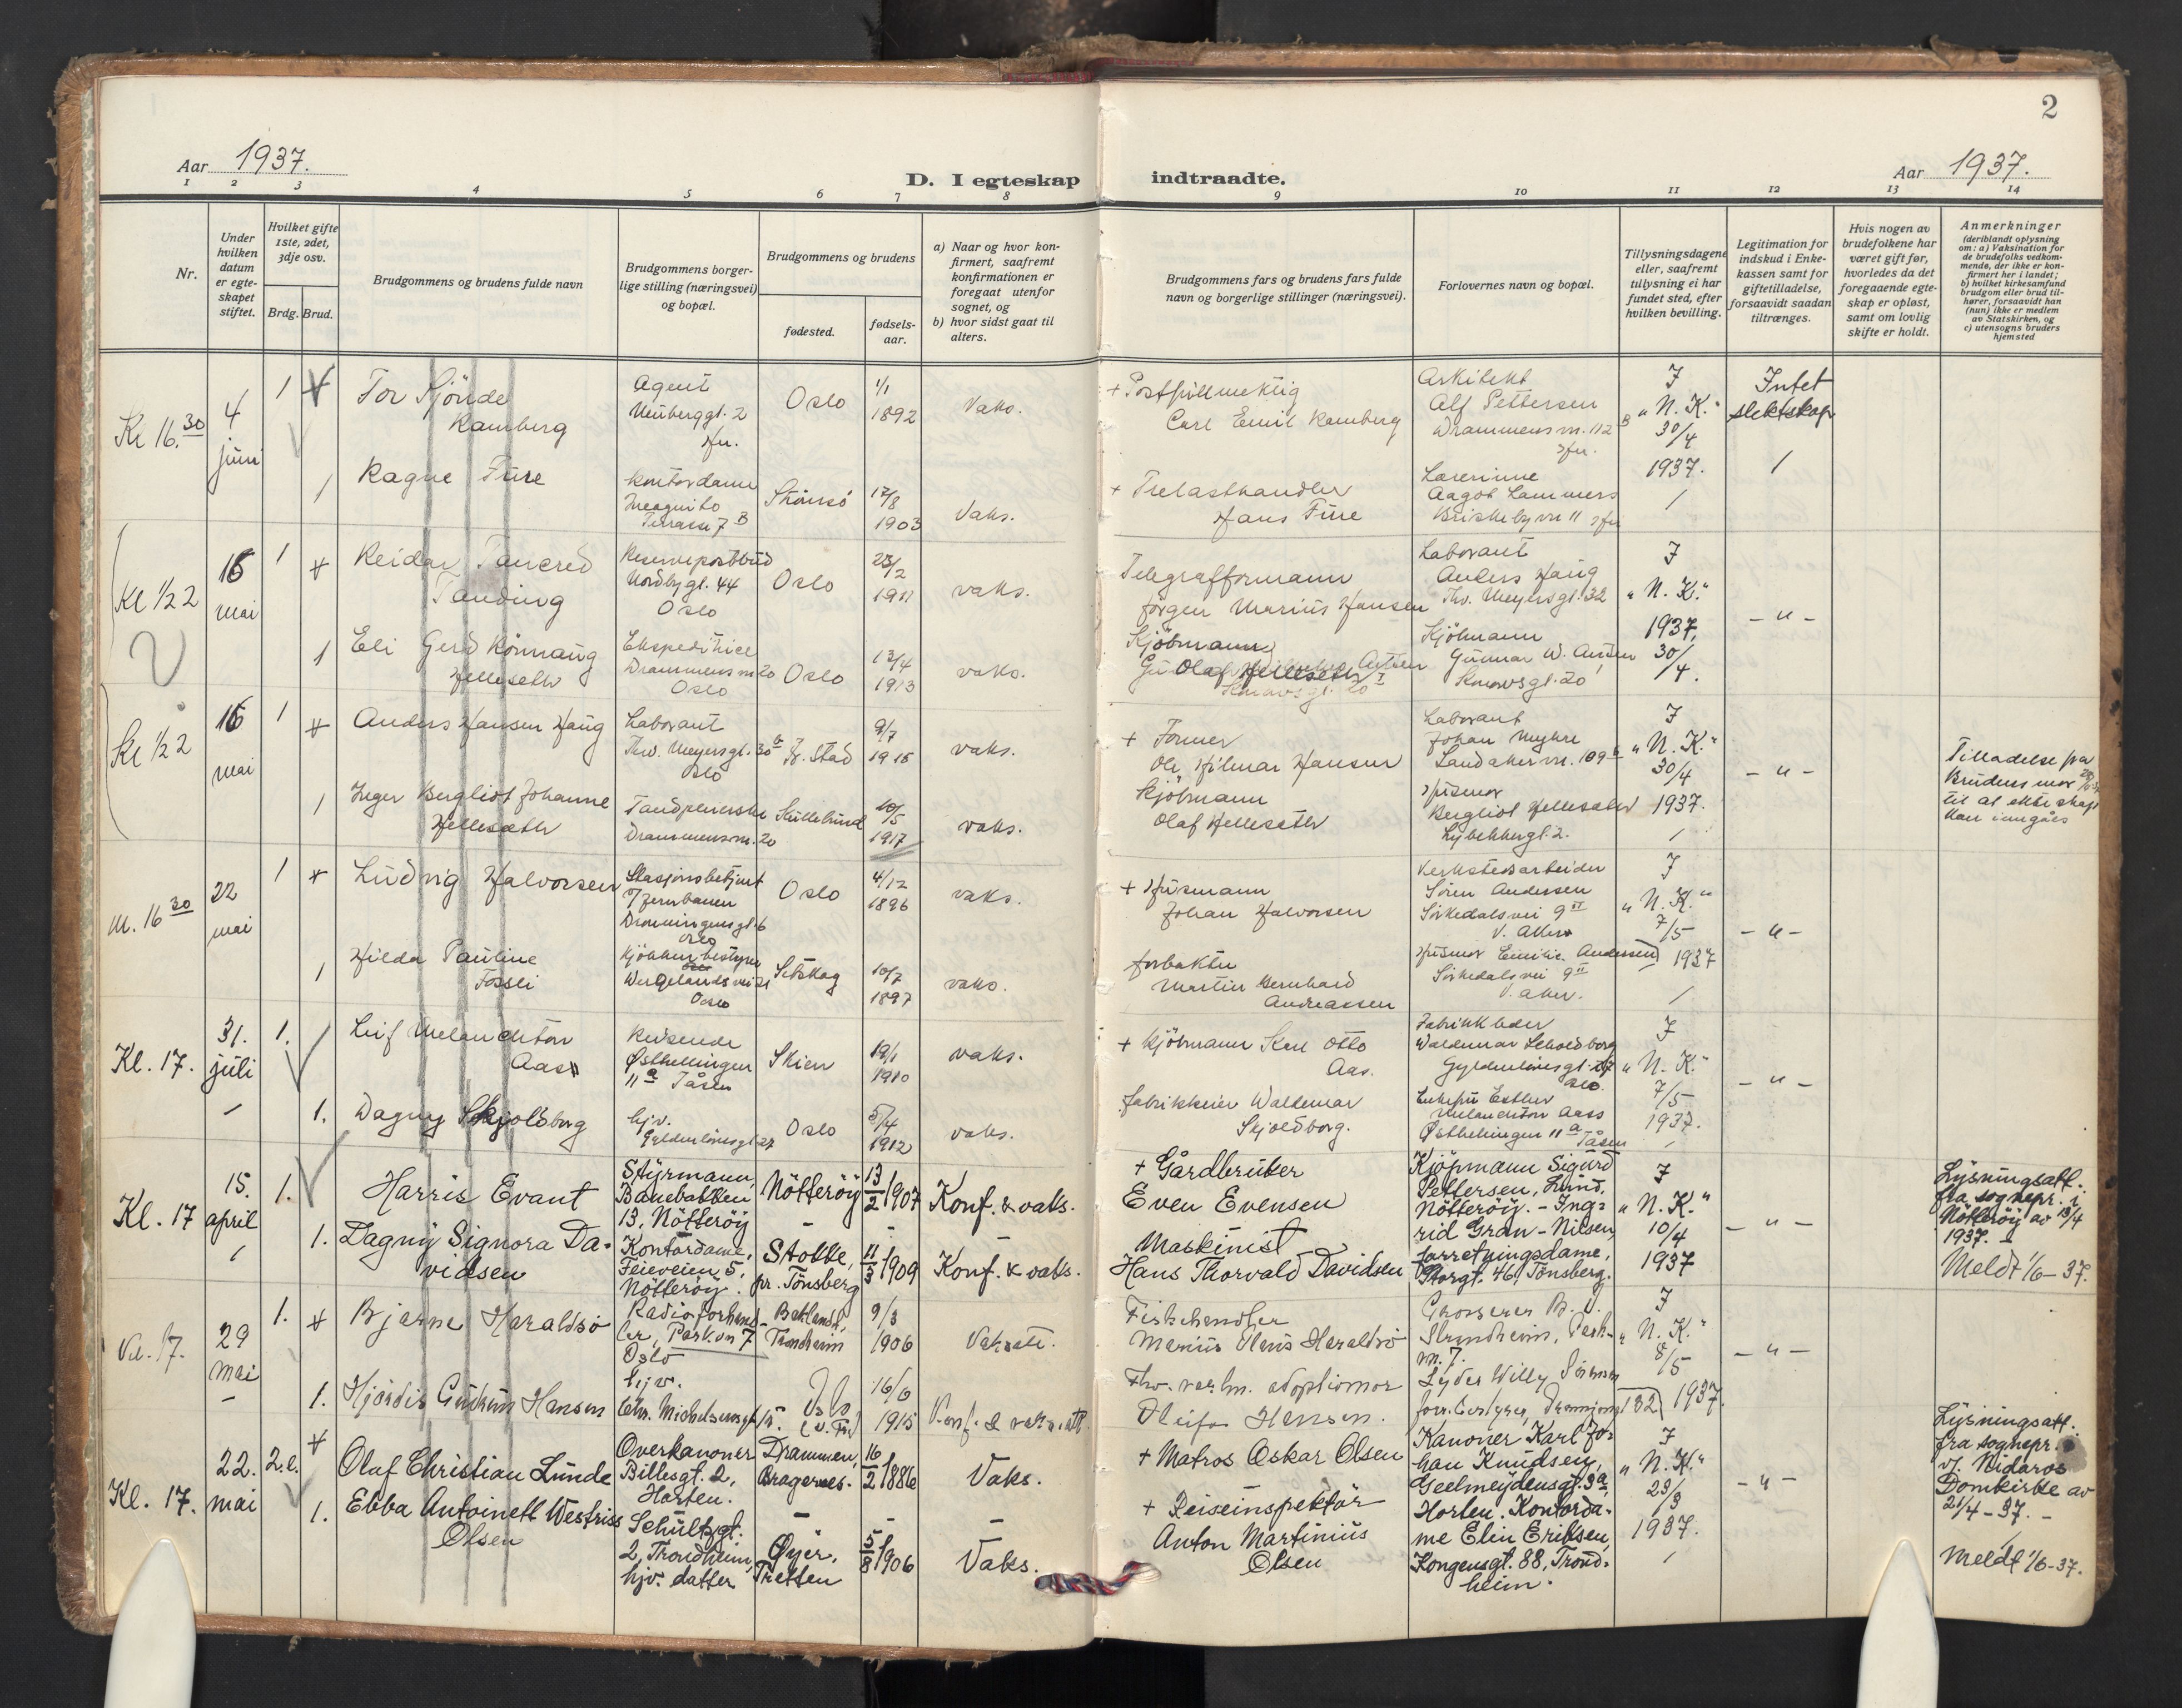 2
Aar 1937.
D. I egteskap indtraadte.
Aar 1937.
1 2 3 4 5 6 7 8 9 10 11 12 13 14
Nr.
Under hvilken datum er egteskapet stiftet.
Hvilket gifte 1ste, 2det, 3dje osv.
Brdg. Brud.
Brudgommens og brudens fulde navn
Brudgommens borgerlige stilling (næringsvei) og bopæl.
Brudgommens og brudens
fødested.
fødselsaar.
a) Naar og hvor konfirmert, saafremt konfirmationen er foregaat utenfor sognet, og
b) hvor sidst gaat til alters.
Brudgommens fars og brudens fars fulde navn og borgerlige stillinger (næringsvei).
Forlovernes navn og bopæl.
Tillysningsdagene eller, saafremt tillysning ei har fundet sted, efter hvilken bevilling.
Legitimation for indskud i Enkekassen samt for giftetilladelse, forsaavidt saadan tiltrænges.
Hvis nogen av brudefolkene har været gift før, hvorledes da det foregaaende egteskap er opløst, samt om lovlig skifte er holdt.
Anmerkninger
(deriblandt oplysning om: a) Vaksination for de brudefolks vedkommende, der ikke er konfirmert her i landet;
b) hvilket kirkesamfund brudgom eller brud tilhører, forsaavidt han (hun) ikke er medlem av Statskirken, og
c) utensogns bruders hjemsted
Kl 16.30
4 juni
1
Tor Sjönde
Ramberg
Agent
Neuberggt. 2
Oslo
1/1
1892
Vaks.
+ Postfullmektig
Carl Emil Ramberg
Arkitekt
Alf Pettersen
Drammensvn. 112 B
I
"N. K."
30/4
1937.
Intet slektskap
1
Ragne Fure
Kontordame
Incognito
Terrasse 7 B
17/8
1903
Vaks.
+ Trelasthandler
Hans Fure
Lærerinne
Aagot Lammers
Briskebyvn 11
Kl 1/2 2
16 mai
1
Reidar Tancred
Tanding
Reservepostbud
Nordbygt. 44
Oslo
Oslo
25/2
1911
vaks.
Telegrafformann
Jørgen Marius Hansen
Laborant
Anders Haug
Thv. Meyersgt. 32
I
"N. K."
1937,
30/4.
- " -
1
Eli Gerd Rönnaug
Hellesæth
Ekspeditrice
Drammensvn 20
Oslo
Oslo
13/4
1913
vaks.
Kjöbmann
Olaf Hellesæth
Kjöbmann
Gunnar W. Antsen
Kl 1/2 2
16 mai
1
Anders Hansen Haug
Laborant
Thv. Meyersgt. 30 b
Oslo
Fr. stad
9/7
1915
vaks.
+ Former
Ole Hilmar Hansen
Laborant
Johan Myhre
Sandakervn. 109 b
I
"N. K."
30/4
1937.
- " -
Tilladelse fra
Brudens mor
til at ekteskap
kan inngåes
1
Inger Bergliot Johanne
Hellesæth
Tandpleierske
Drammensvn. 20
10/5
1917
vaks.
Kjöbmann
Olaf Hellesæth
Husmor
Bergliot Hellesæth
Lybekkergt. 2.
Kl. 16 30
22 mai
1
Ludvig Halvorsen
Stasjonsbetjent
v/Jernbanen
Dronningensgt. 6
Oslo
Oslo
4/12
1896
vaks.
+ Husmann
Johan Halvorsen
Verkstedsarbeider
Sören Andersen
Sörkedalsvei 9 II
V. Aker
I
"N. K."
7/5
1937
- " -
1
Hilda Pauline
Fossli
Kjökkenbestyrer
Wergelandsvei 21
Oslo
Setskog
10/7
1897
vaks.
forpakter
Martin Bernhard
Andreassen
Husmor Emilie Andersen
Sörkedalsvei 9 II
V. Aker.
Kl. 17.
31. juli
1.
Leif Melanchton
Aas
Reisende
Østhellingen
11 a Tåsen
Skien
19/1
1910
vaks.
+ Kjöbmann Karl Otto
Aas.
Fabrikkleder
Waldemar Schioldborg
Gyldenlövesgt. 27
Oslo
I
"N. K."
7/5
1937.
- " -
1.
Dagny Skjoldborg
hjv.
Gyldenlövesgt 27
Oslo
5/4
1912
vaks.
fabrikkeier Waldemar
Skjoldborg.
Enkefru Esther
Melanchton Aass
Østhellingen 11 a Tåsen
Kl. 17
15. april
1.
Harris Evant
Styrmann,
Banebakken
13, Nötteröy
Nötteröy
13/2 1907
Konf. & vaks.
+ Gårdbruker
Even Evensen
Kjöpmann Sigurd
Pettersen, Lund,
Nötteröy. - Ing-
rid Gran-Nilsen,
forretningsdame,
Storgt. 46, Tönsberg.
I
"N. K."
10/4
1937
- " -
Lysningsatt.
fra sognepr. i
Nötteröy av 13/4
1937.
Meldt 1/6-37.
1.
Dagny Signora Da-
vidsen
Kontordame,
Feieveien 5,
Nötteröy.
Stokke,
pr. Tönsberg
11/3 1909
Konf. & vaks.
Maskinist
Hans Thorvald Davidsen
Kl. 17.
29 mai
1.
Bjarne Haraldsö
Radioforhand-
ler, Parkvn 7
Oslo
Baklandet,
Trondheim
9/3
1906
Vaksatt.
Fiskehandler
Marius Olaus Haraldsö
Grosserer
Strindheim, Park-
vn. 7.
I
"N. K."
8/5
1937.
- " -
1.
Hjördis Gudrun Hansen
hjv.
Chr. Michelsensgt
16/6
1915
Konf. & vaks. att.
adoptivmor
Olefa Hansen.
Lyder Willy
Kl. 17.
22. mai
2.e.
Olaf Christian Lunde
Overkanoner
Billesgt. 2,
Horten.
Drammen,
Bragernes.
16/2 1886
Vaks.
+ Matros Oskar Olsen
Kanoner Karl Jo-
han Knudsen,
Geelmeydensgt. 3a,
Horten. Kontorda-
me Elin Eriksen,
Kongensgt. 88, Trond-
heim.
I
"N. K."
23/3
1937.
- " -
Lysningsatt.
fra sognepr.
v. Nidaros
Domkirke av
21/4-37. -
Meldt 1/6-37.
1.
Ebba Antoinett Westriss
Olsen
Schultzgt.
2, Trondheim,
hjv. datter
Øyer,
Tretten
5/8 1906
Vaks.
+ Reiseinspektör
Anton Martinius
Olsen